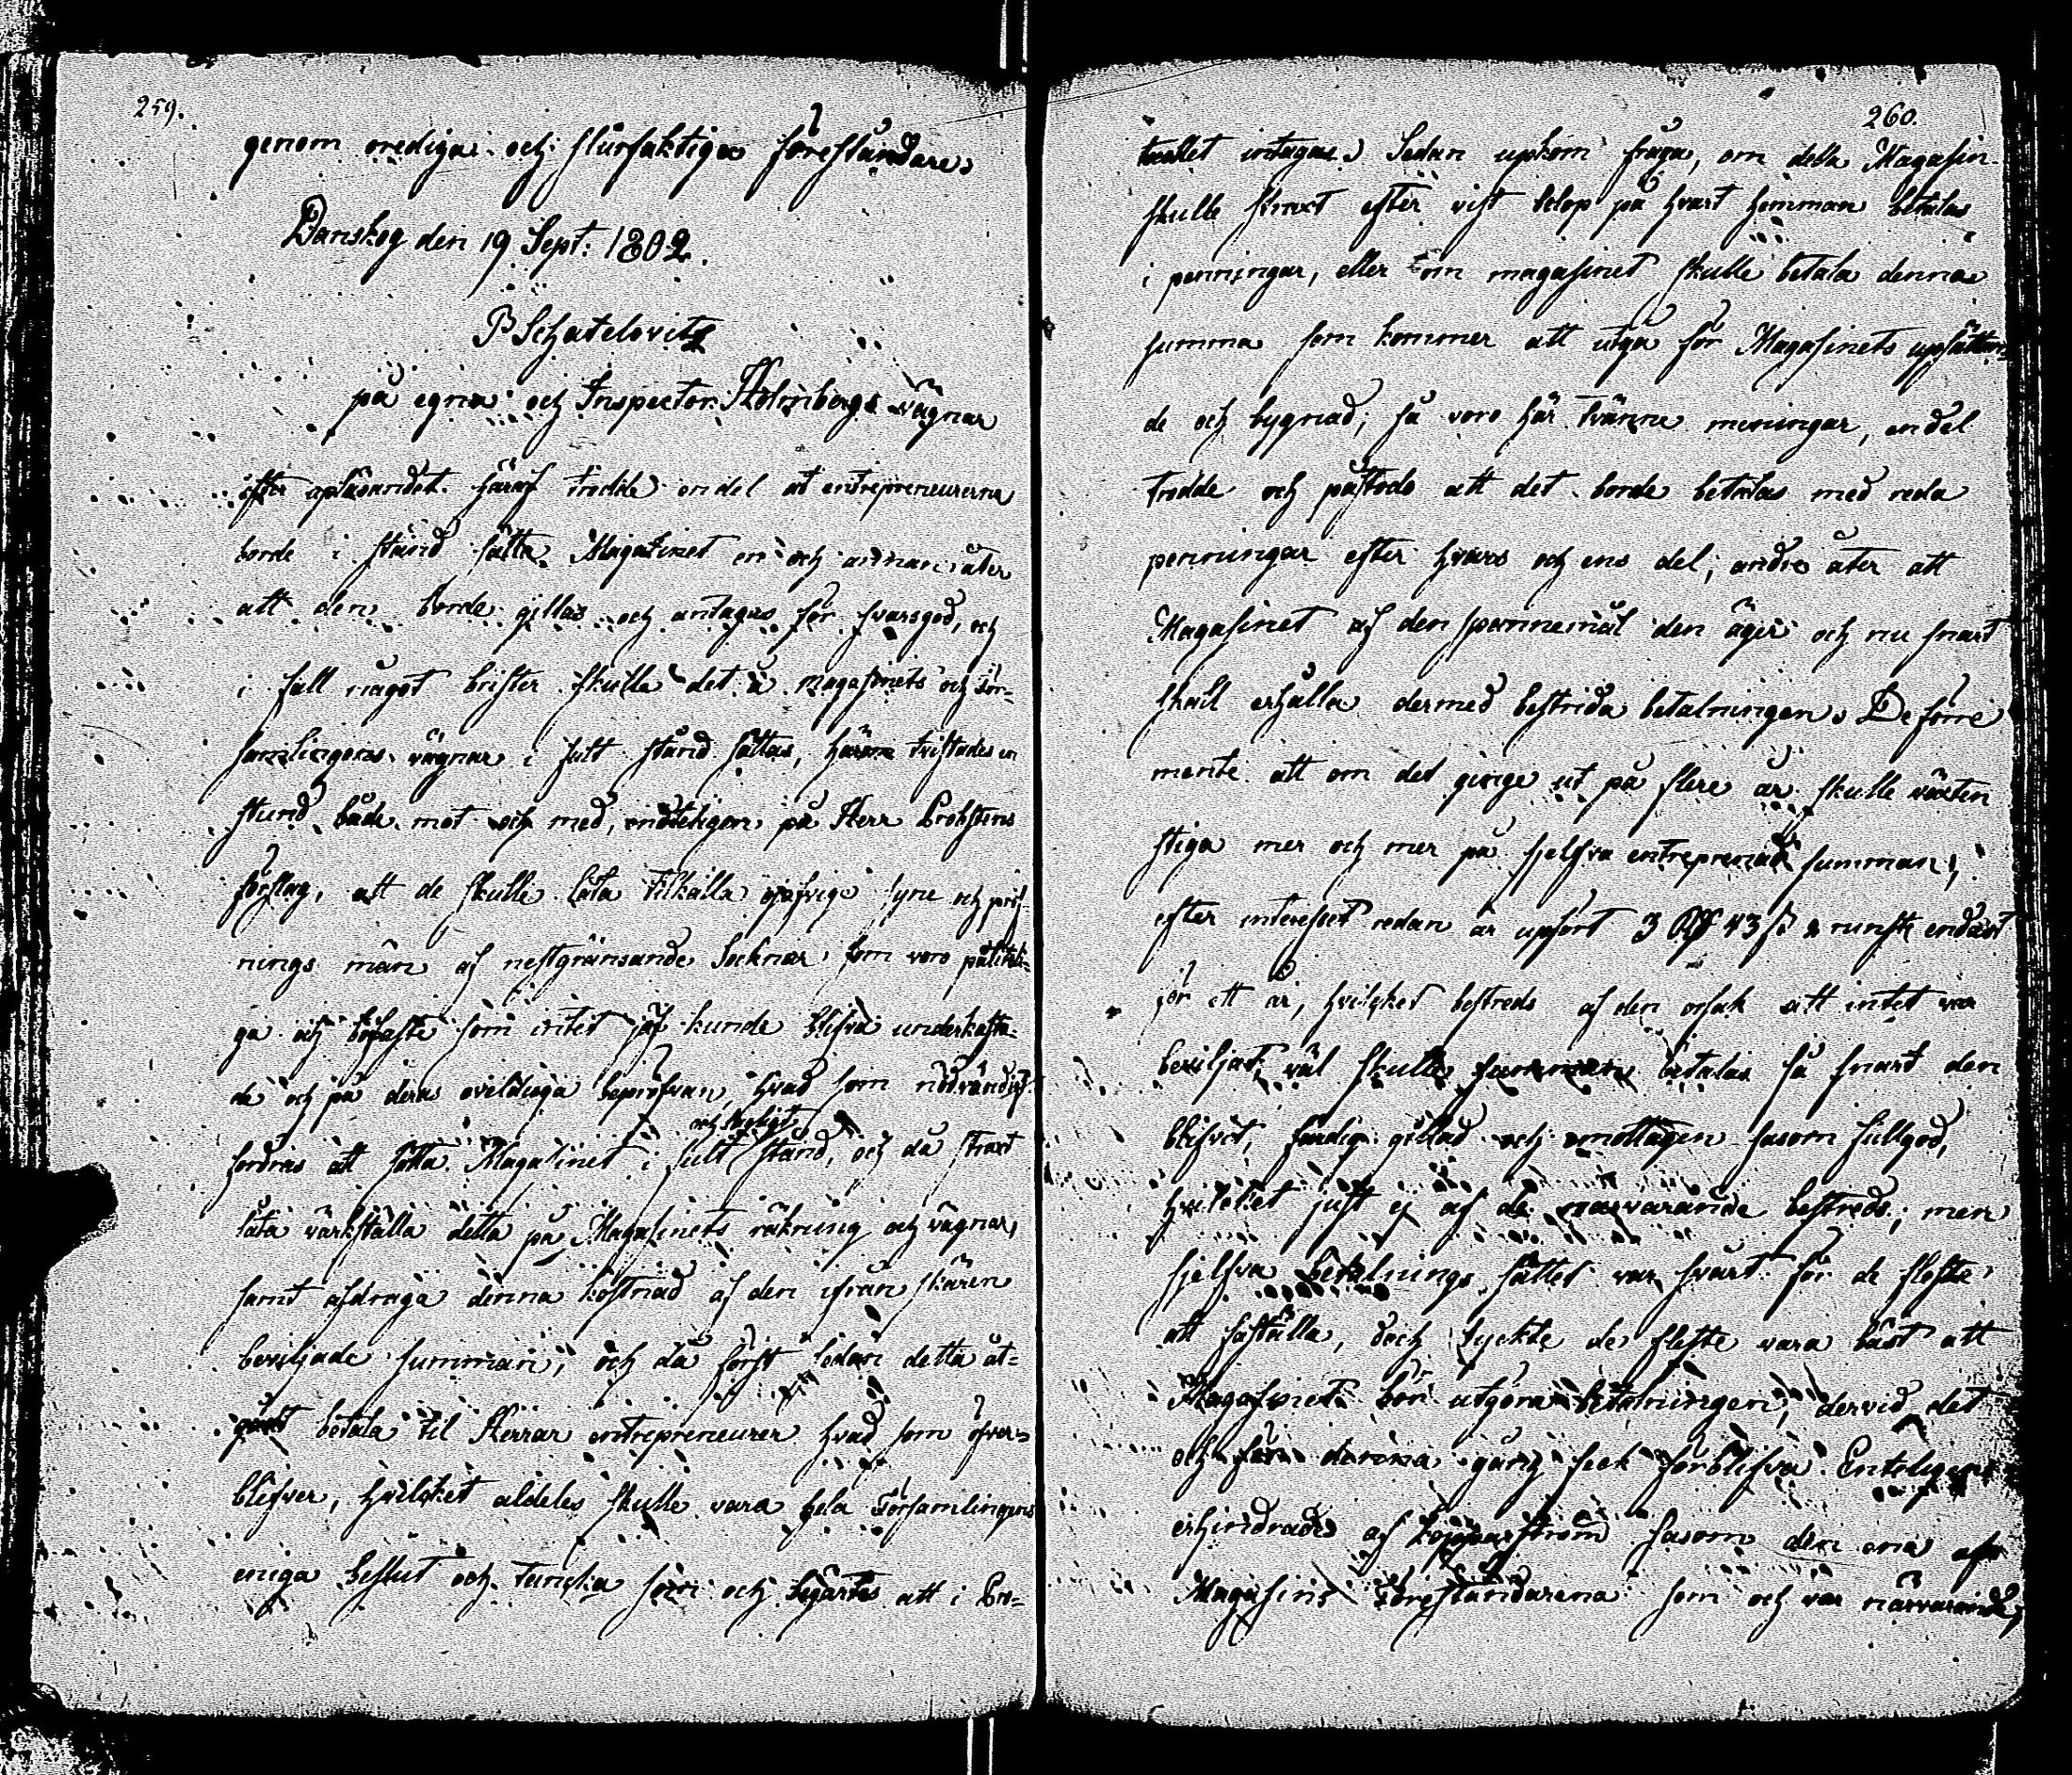 259.
genom orediga och slursaktiga föreståndare.
Danskog den 19 Sept: 1802.
P Schatelovitz
på egna och Inspector Holmbergs vägnar
efter upläsandet häraf trodde en del at entrepreneurerna
borde i stånd sätta Magasinet en och annan åter
att den borde gillas och antagas för svarsgod, och
i fall något brister skulle det å magasinets och för-
samlingens vägnar i fult stånd sättas, härom tvistades en
stund både mot och med, endteligen på Herr Probstens
förslag, att de skulle låta tilkalla ojäfvige syne och pröf-
nings män af nestgränsande Socknar som voro pålitli-
ga och som intet jäf kunde blifva underkasta-
de och på dera ovälduga bepröfvan, hvad som nödvändigt
och skeligt
fordras att sätta Magasinet i fult stånd, och då straxt
låta värkställa detta på Magasinets räkning och vägnar,
samt afdraga denna kostnad af den ifrån skären
beviljade summan; och då först sedan detta åt-
gådt betala til Herrar entrepreneurer hvad som öfver-
blifver, hvilcket aldeles skulle vara hela Församlingens
eniga beslut och tancka som och begärtes att i Pro-
260.
tocollet intagas. Sedan upkom fråga, om detta Magasin
skulle straxt efter vist belop på hvart hemman betalas
i penningar, eller om magasinet skulle betala denna
summa som kommer att utgå för Magasinets upsättan-
de och bygnad; så voro här tvänne meningar, en del
trodde och påstodo att det borde betalas med reda
penningar efter hvars och ens del; andre åter att
Magasinet af den spannemål den äger och nu snart
skall erhålla dermed bestrida betalningen. De förre
mente att om det ginge ut på flere år skulle växten
stiga mer och mer på sjelfva entreprenad summan,
efter interesset redan är upfört 3 43 runst: endast
för ett år, hvilcket bestreds af den orsak att intet var
beviljat, väl skulle summan betalas så snart den
blifvit färdig gillad och emottagen såsom fullgod,
hvilcket just ej af de närvarande bestreds; men
sjelfva betalnings sättet var svårt för de fleste
att faställa, doch tyckte de fleste vara bäst att
Magasinet bör utgöra betalningen, dervid det
och för denna gång feck förblifva. Enteligen
erhindrade af Kopparström såsom den ena af
Magasins Föreståndarena som och var närvarande,